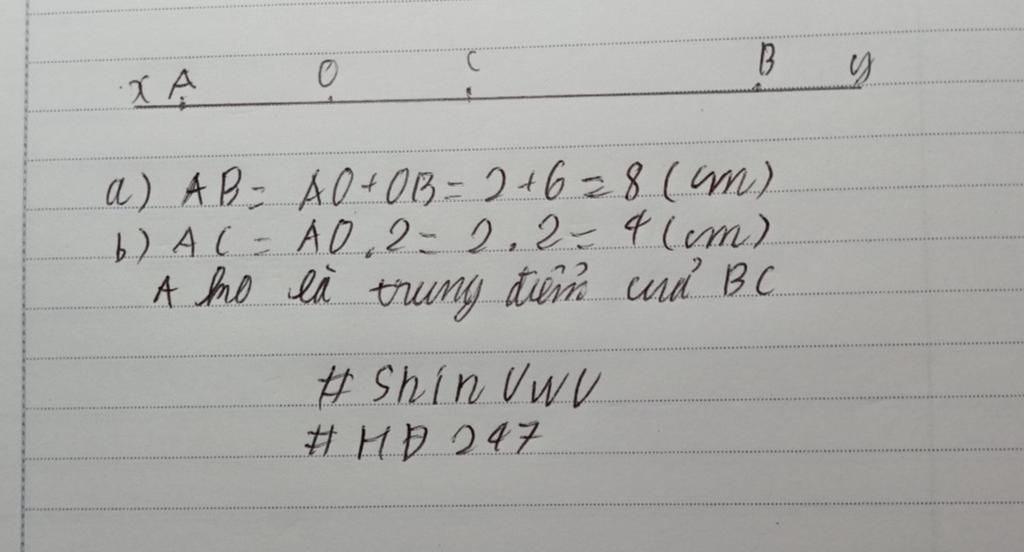 x A O C B y
a) AB = AO + OB = 2 + 6 = 8 (cm)
b) AC = AO . 2 = 2 . 2 = 4 (cm)
A là trung điểm của BC
# ShinUwU
# HĐ 247